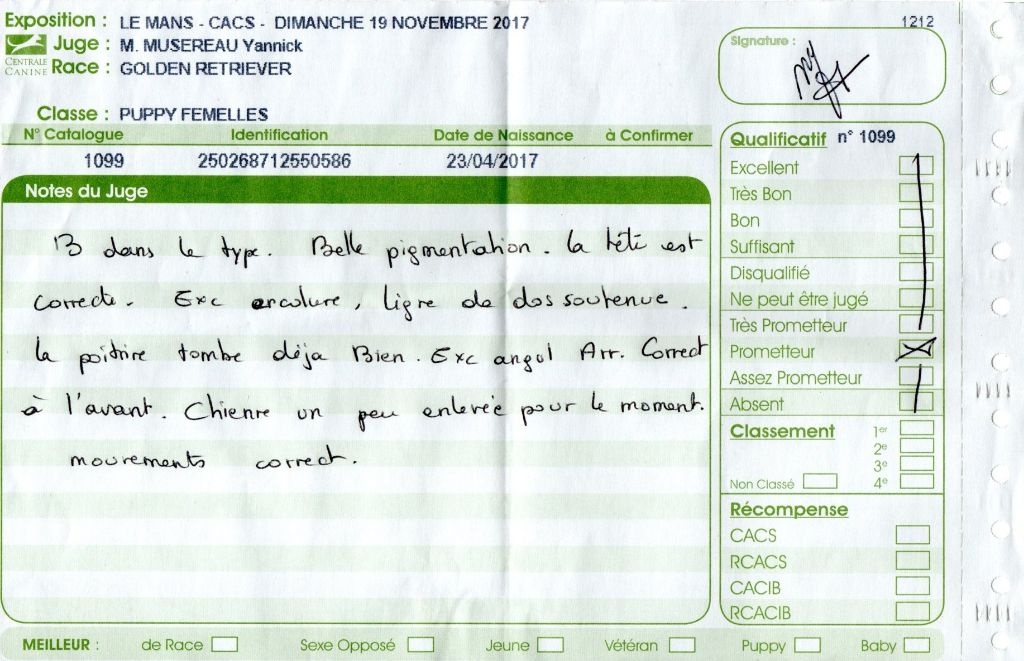 Exposition : LE MANS - CACS - DIMANCHE 19 NOVEMBRE 2017
1212
CENTRALE CANINE
Juge : M. MUSEREAU Yannick
Race : GOLDEN RETRIEVER
Signature :
Classe : PUPPY FEMELLES
N° Catalogue Identification Date de Naissance à Confirmer
1099 250268712550586 23/04/2017
Notes du Juge
B dans le type. Belle pigmentation. La tête est
correcte. Exc encolure, ligne de dos soutenue.
la poitrine tombe déja Bien. Exc angul Arr. Correct
à l'avant. Chienne un peu enlevée pour le moment.
mouvements correct.
Qualificatif n° 1099
Excellent
Très Bon
Bon
Suffisant
Disqualifié
Ne peut être jugé
Très Prometteur
Prometteur
Assez Prometteur
Absent
Classement 1er
2e
3e
Non Classé 4e
Récompense
CACS
RCACS
CACIB
RCACIB
MEILLEUR : de Race Sexe Opposé Jeune Vétéran Puppy Baby